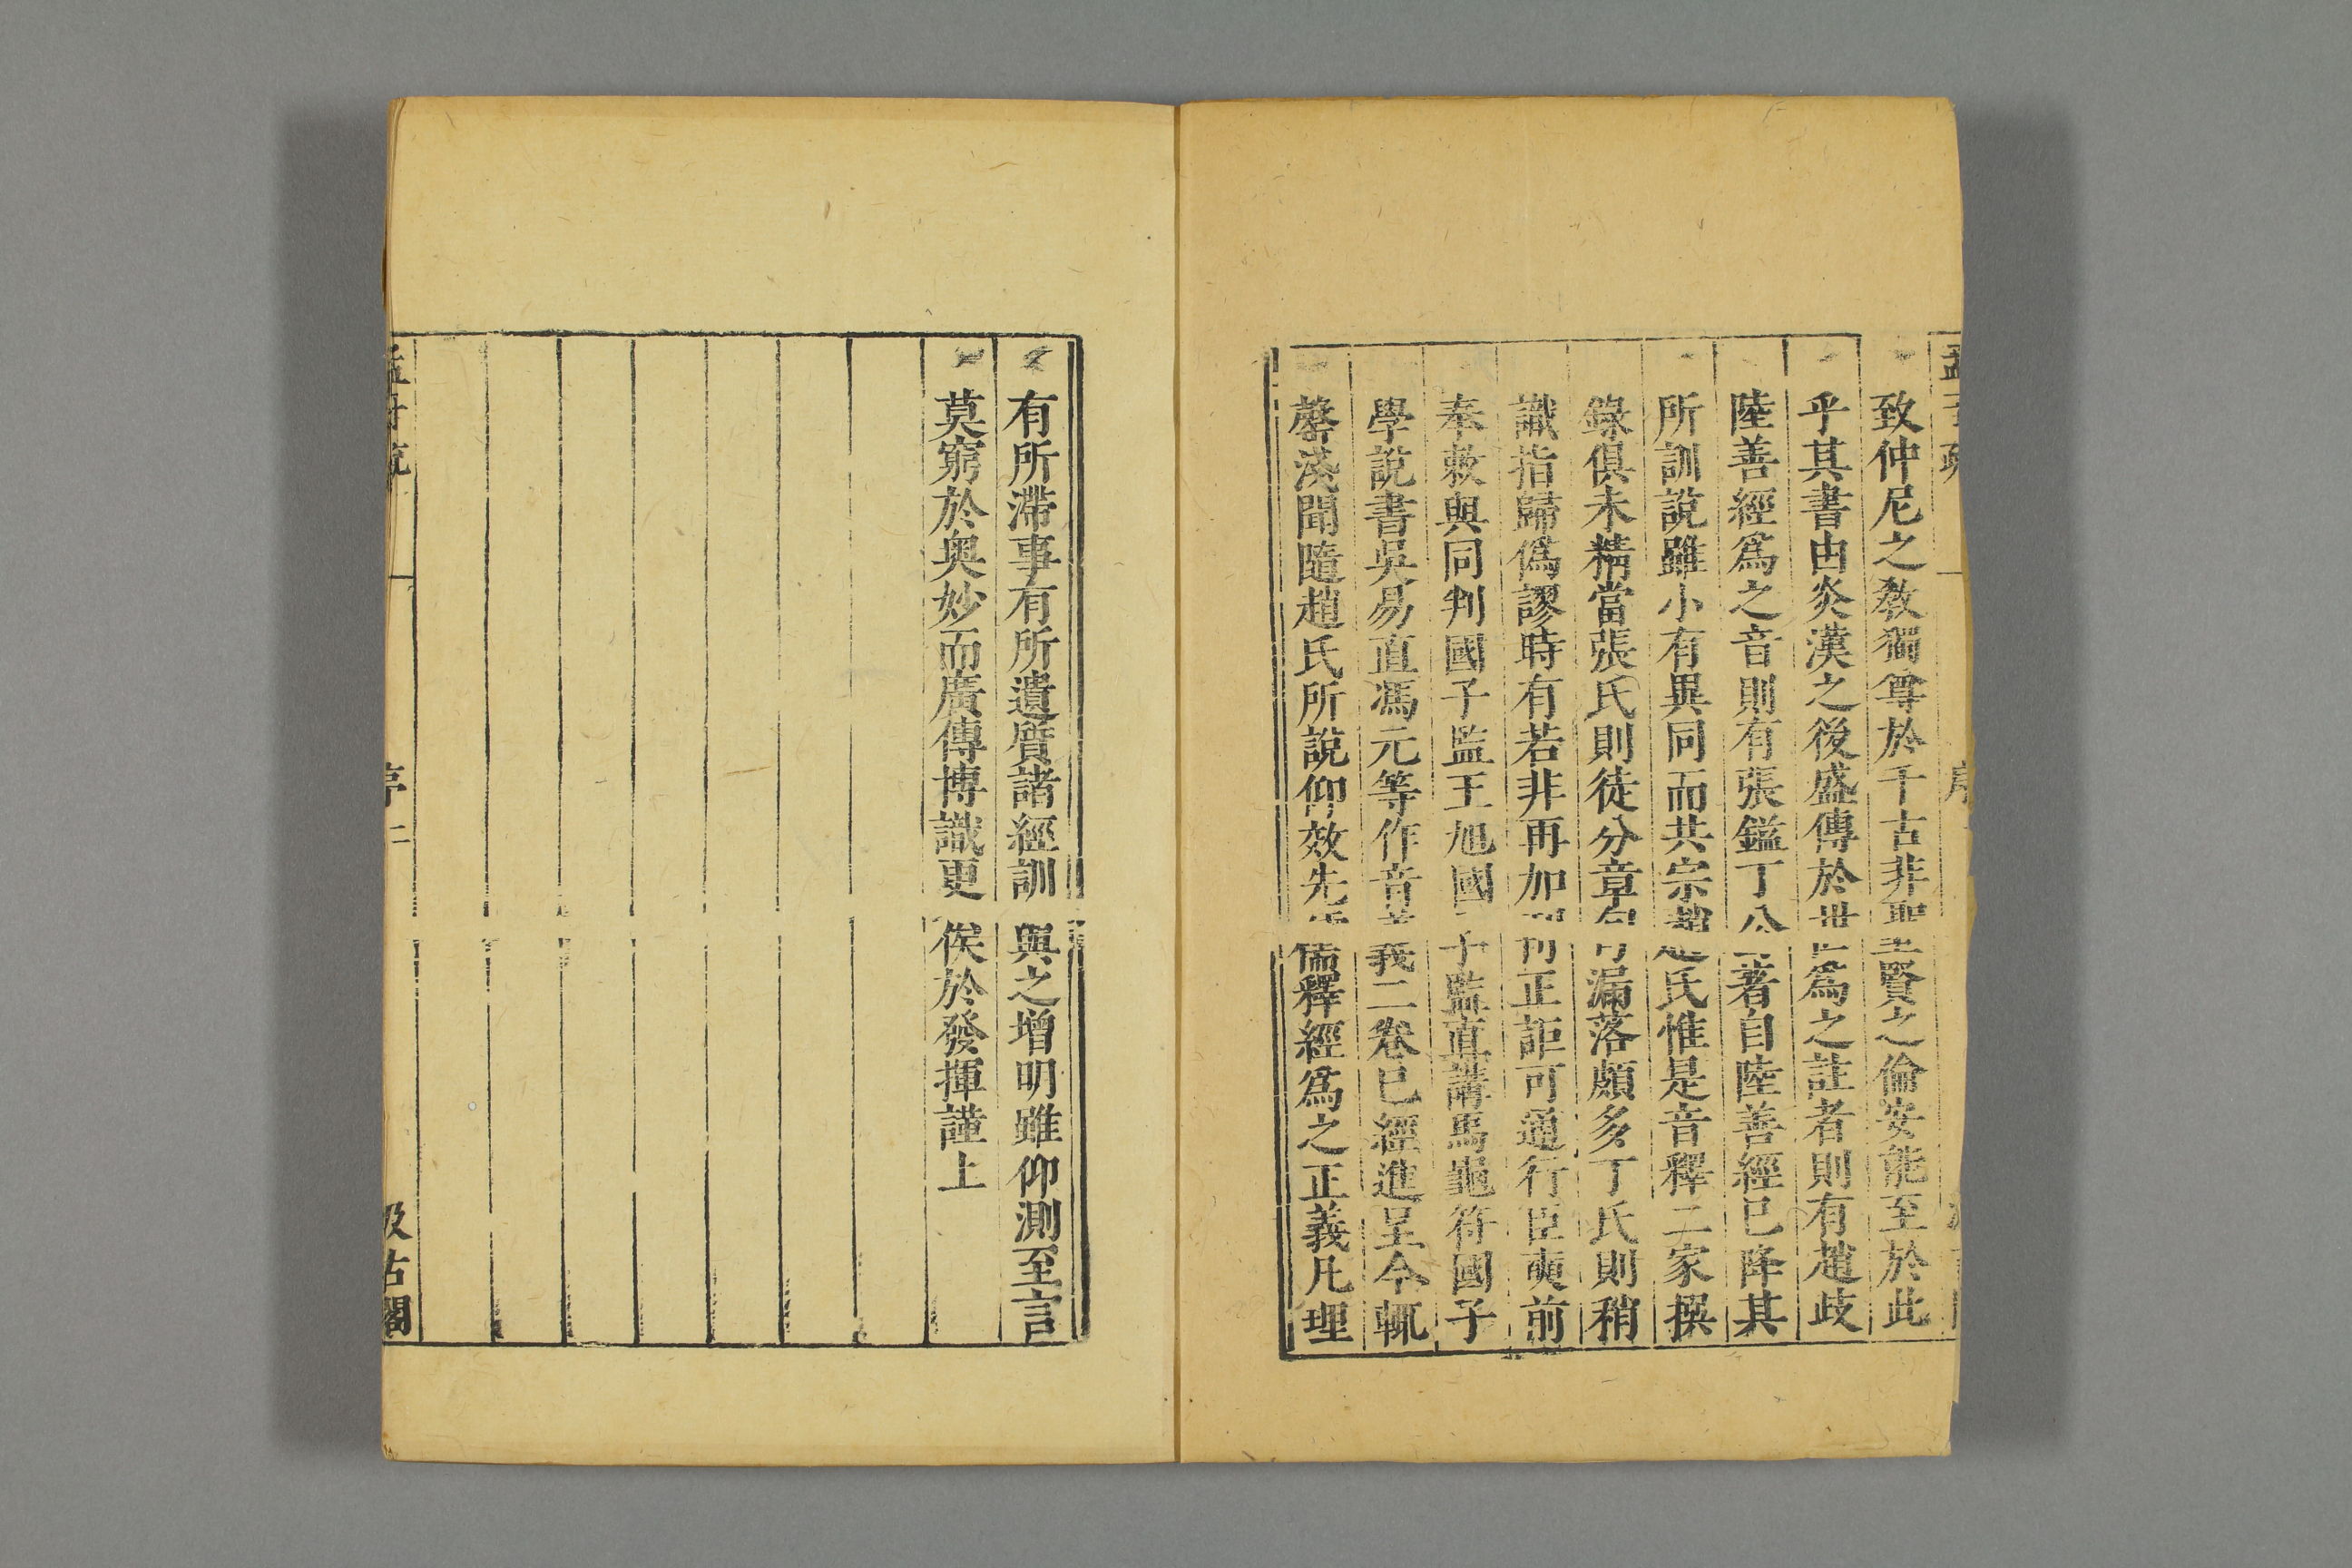 致仲尼之教獨尊於千古非聖賢之倫安能至於此
乎其書由炎漢之後盛傳於世爲之註者則有趙歧
陸善經爲之音則有張鎰丁公著自陸善經已降其
所訓說雖小有異同而共宗趙氏惟是音釋二家撰
錄俱未精當張氏則徒分章句漏落頗多丁氏則稍
識指歸僞謬時有若非再加刊正詎可通行臣奭前
奉敕與同判國子監王旭國子監直講馬龜符國子
學說書吳易直馮元等作音義二卷已經進呈今輒
罄淺聞隨趙氏所說仰效先儒釋經爲之正義凡理
有所滯事有所遺質諸經訓與之增明雖仰測至言
莫窮於奧妙而廣傳博識更俟於發揮謹上
孟子疏
序
二
汲古閣